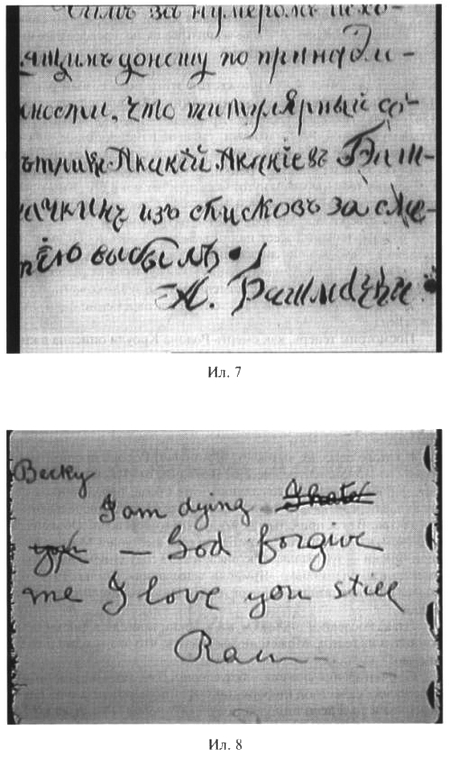 симъ за нумеромъ исхо-
дящимъ доношу по принадле-
жности, что титулярный со-
вѣтникъ Акакій Акакіевъ Баш-
мачкинъ изъ списковъ за сме-
ртію выбылъ.
А.
Ил. 7
Becky
I am dying I hate
you — God forgive
me I love you still
Ram
Ил. 8